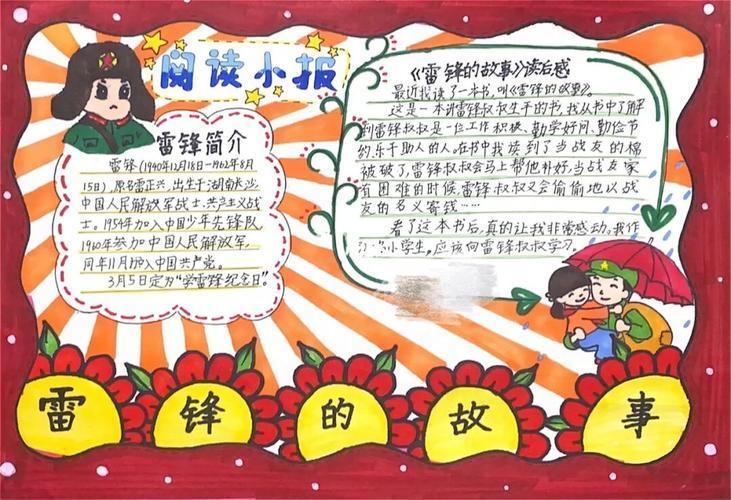 阅读小报
雷锋简介
雷锋(1940年12月18日—1962年8月
15日),原名雷正兴,出生于湖南长沙,
中国人民解放军战士、共产主义战
士。1954年加入中国少年先锋队,
1960年参加中国人民解放军,
同年11月加入中国共产党。
3月5日定为“学雷锋纪念日”。
《雷锋的故事》读后感
最近我读了一本书,叫《雷锋的故事》。
这是一本讲雷锋叔叔生平的书,我从书中了解
到雷锋叔叔是一位工作积极、勤学好问、勤俭节
约、乐于助人的人。在书中我读到了当战友的棉
被破了,雷锋叔叔会马上帮他补好,当战友家
有困难的时候雷锋叔叔又会偷偷地以战
友的名义寄钱……
看了这本书后,真的让我非常感动,我作
小学生,应该向雷锋叔叔学习。
雷锋的故事